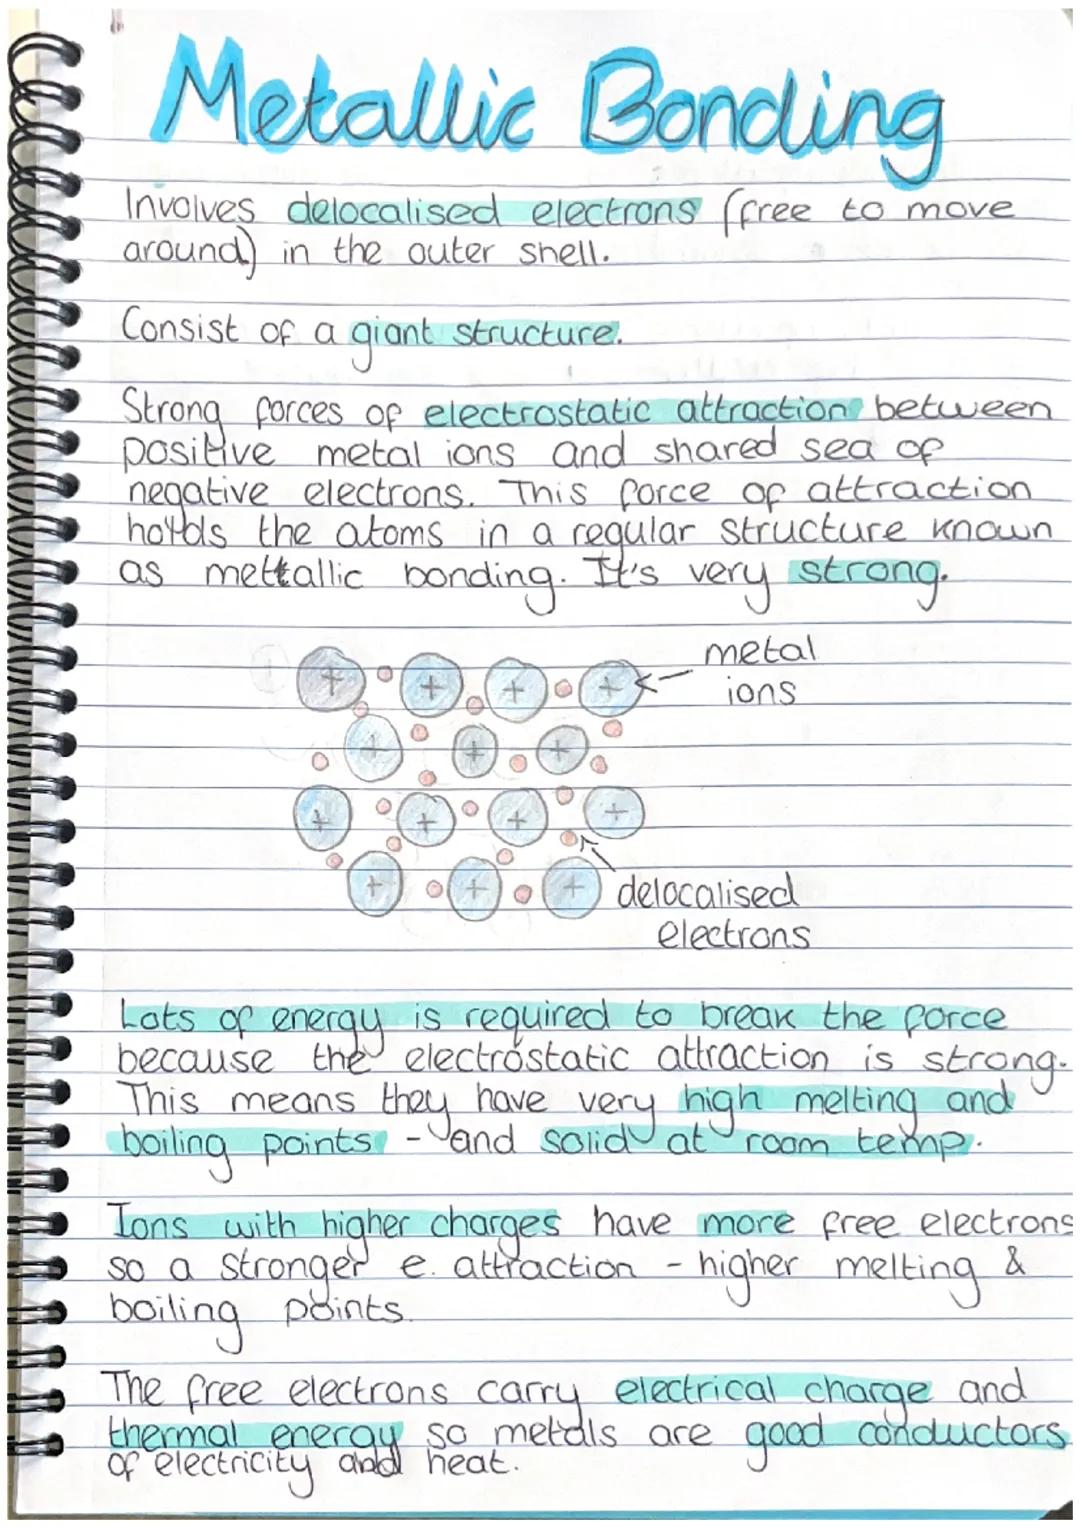 Metallic Bonding
Involves delocalised electrons (free to move
around) in the outer shell.
Consist of a giant structure.
Strong forces of electrostatic attraction between
positive metal ions and shared sea of
negative electrons. This force of attraction
holds the atoms in a regular structure known
as mettallic bonding. It's very strong.
metal
ions
+ + + +
+ + +
+ + + +
+ + +
delocalised
electrons
Lots of energy is required to break the force
because the electrostatic attraction is strong.
This means they have very high melting and
boiling points - and solid at room temp.
Ions with higher charges have more free electrons
so a stronger e. attraction - higher melting &
boiling points.
The free electrons carry electrical charge and
thermal energy so metals are good conductors
of electricity and heat.